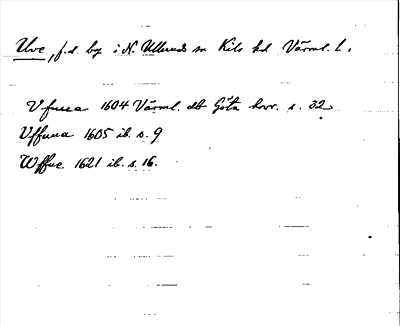 Uve, f.d. by i N. Ulleruds sn Kils hd Värml. l.
Vfuea 1604 Värml. db Göta hovr. s. 32
Vffuua 1605 ib. s. 9
Wffue 1621 ib. s. 16.